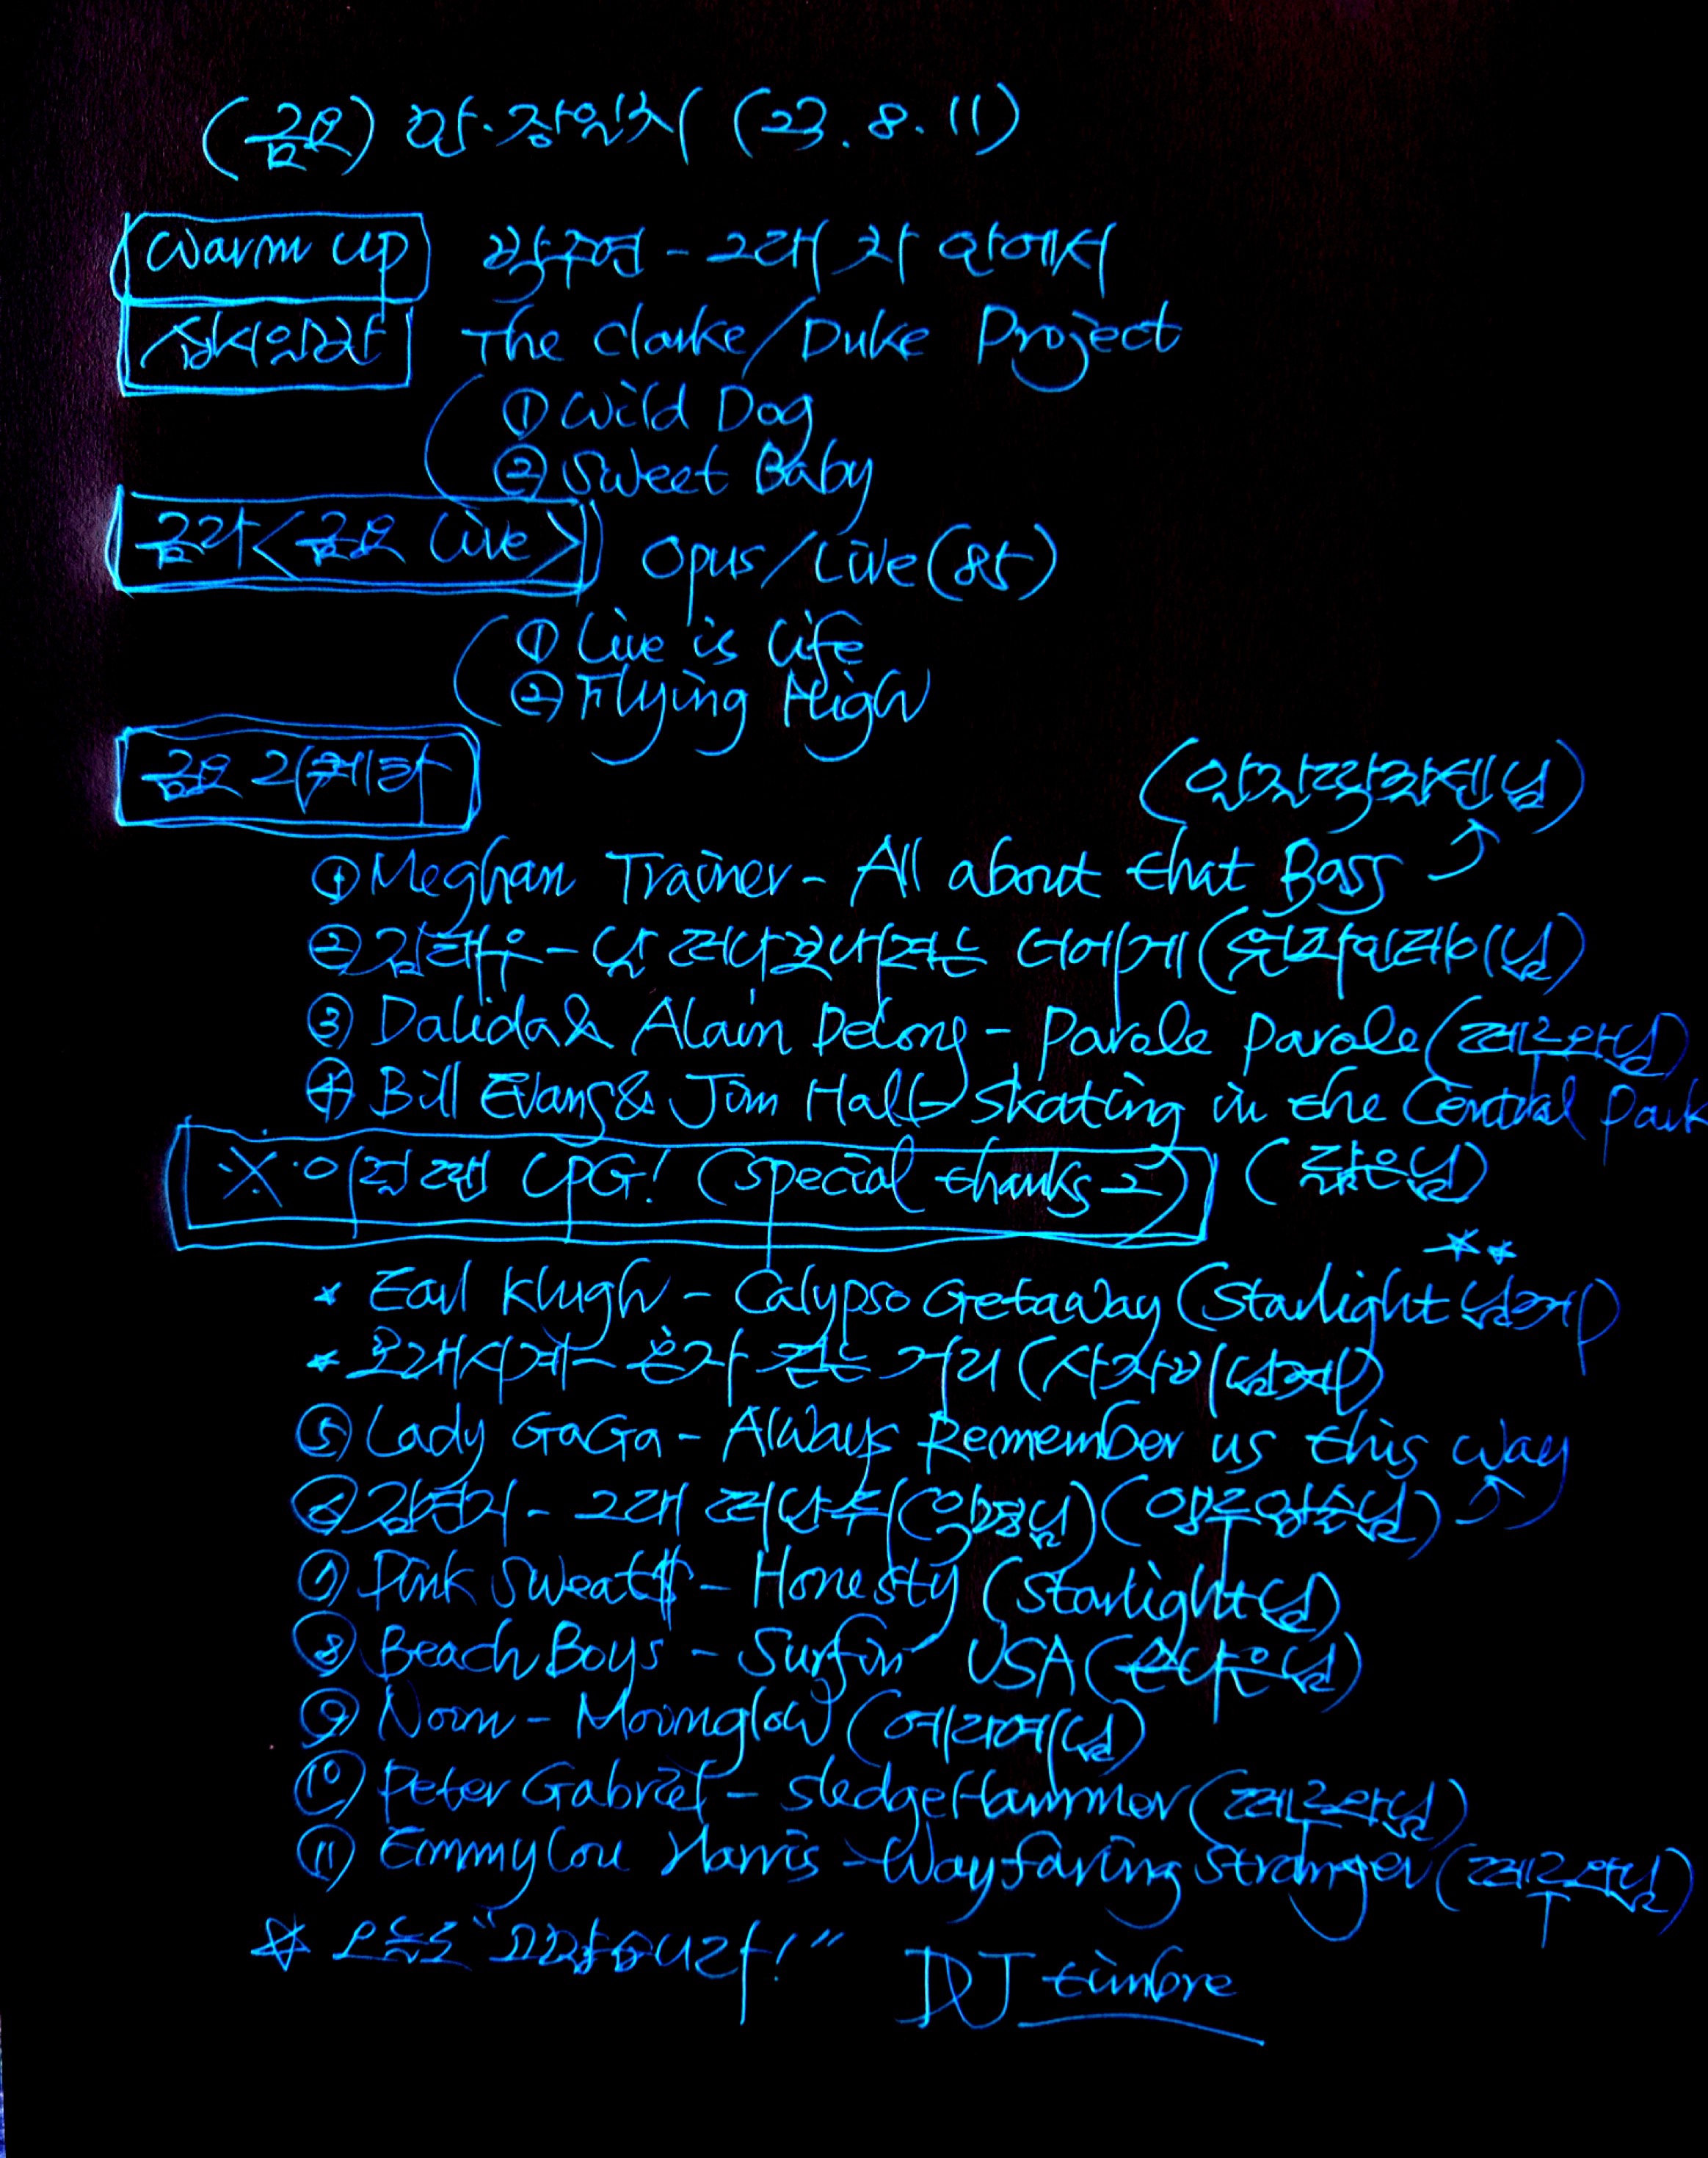 (금요) 음악.장일지 (23.8.11)
Warm up 박주연 - 그대 차 안에서
The Clarke/Duke Project
① Wild Dog
② Sweet Baby
금라<금요 Live> Opus/Live(85)
① Live is Life
② Flying High
금요
① Meghan Trainer - All about that Bass
② 김태우 - 날 떠나보내려는 너에게
③ Dalida & Alain Delong - Parole Parole (쩨루와님)
④ Bill Evans & Jim Hall - Skating in the Central Park
※ 이럴땐 CPG! (special thanks 2) (같은님)
* Earl Klugh - Calypso Getaway (Starlight님께)
* 모래시계 - 혼자 걷는 거리 (사자비님께)
⑤ Lady GaGa - Always Remember us this way
⑥ 김현기 - 그대 떠난 후
⑦ Pink Sweat$ - Honesty (Starlight님)
⑧ Beach Boys - Surfin' USA
⑨ Noon - Moonglow (에리에님)
⑩ Peter Gabriel - SledgeHammer (쩨루와님)
⑪ Emmylou Harris - Wayfaring Stranger (쩨루와님)
☆ 오늘도 "고맙습니다!" DJ timbre